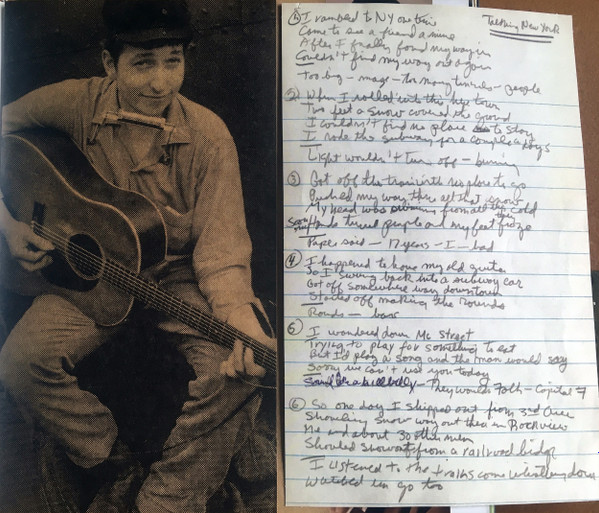 Talking New York
1 I rambled to NY one time
Come to see a friend a mine
After I finally found my way in
Couldn't find my way out again
Too big – many – too many tunnels – people
2 When I rolled into this here town
Two feet a snow covered the ground
I couldn't find no place to stay
I rode the subway for a couple a days
Light wouldn't turn off – burning
3 Got off the train with no place to go
Pushed my way thru all that snow
My head was from all the cold
they
people and my feet froze
Paper said – 17 years – I – bad
4 I happened to have my old guitar
So I swung back into a subway car
Got off somewhere way downtown
Started off making the rounds
Rounds – bars
5 I wandered down Mc Street
Trying to play for something to eat
But I'd play a song and the man would say
Sorry we can't use you today
Sound like a hillbilly – They would Folk – Capital F
6 So one day I shipped out from 3rd Ave
Shoveling snow way out there in Rockview
Me and about 30 other men
Shoveled snow off from a railroad bridge
I listened to the trains come whistling down
Watched em go too